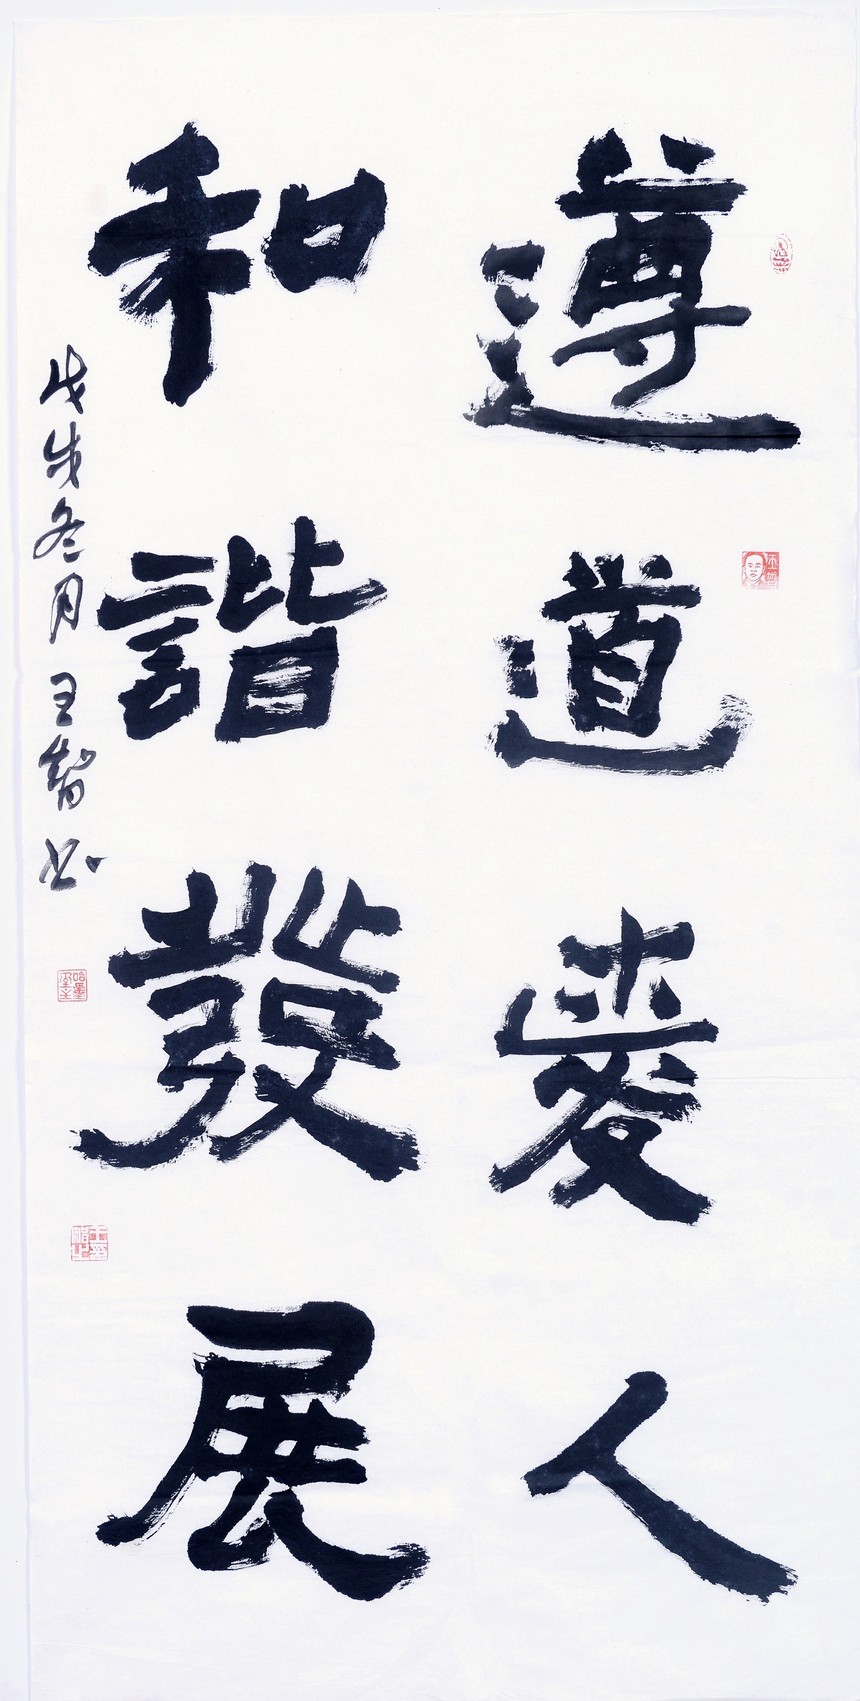 遵道愛人
和諧發展
戊戌冬月王智书